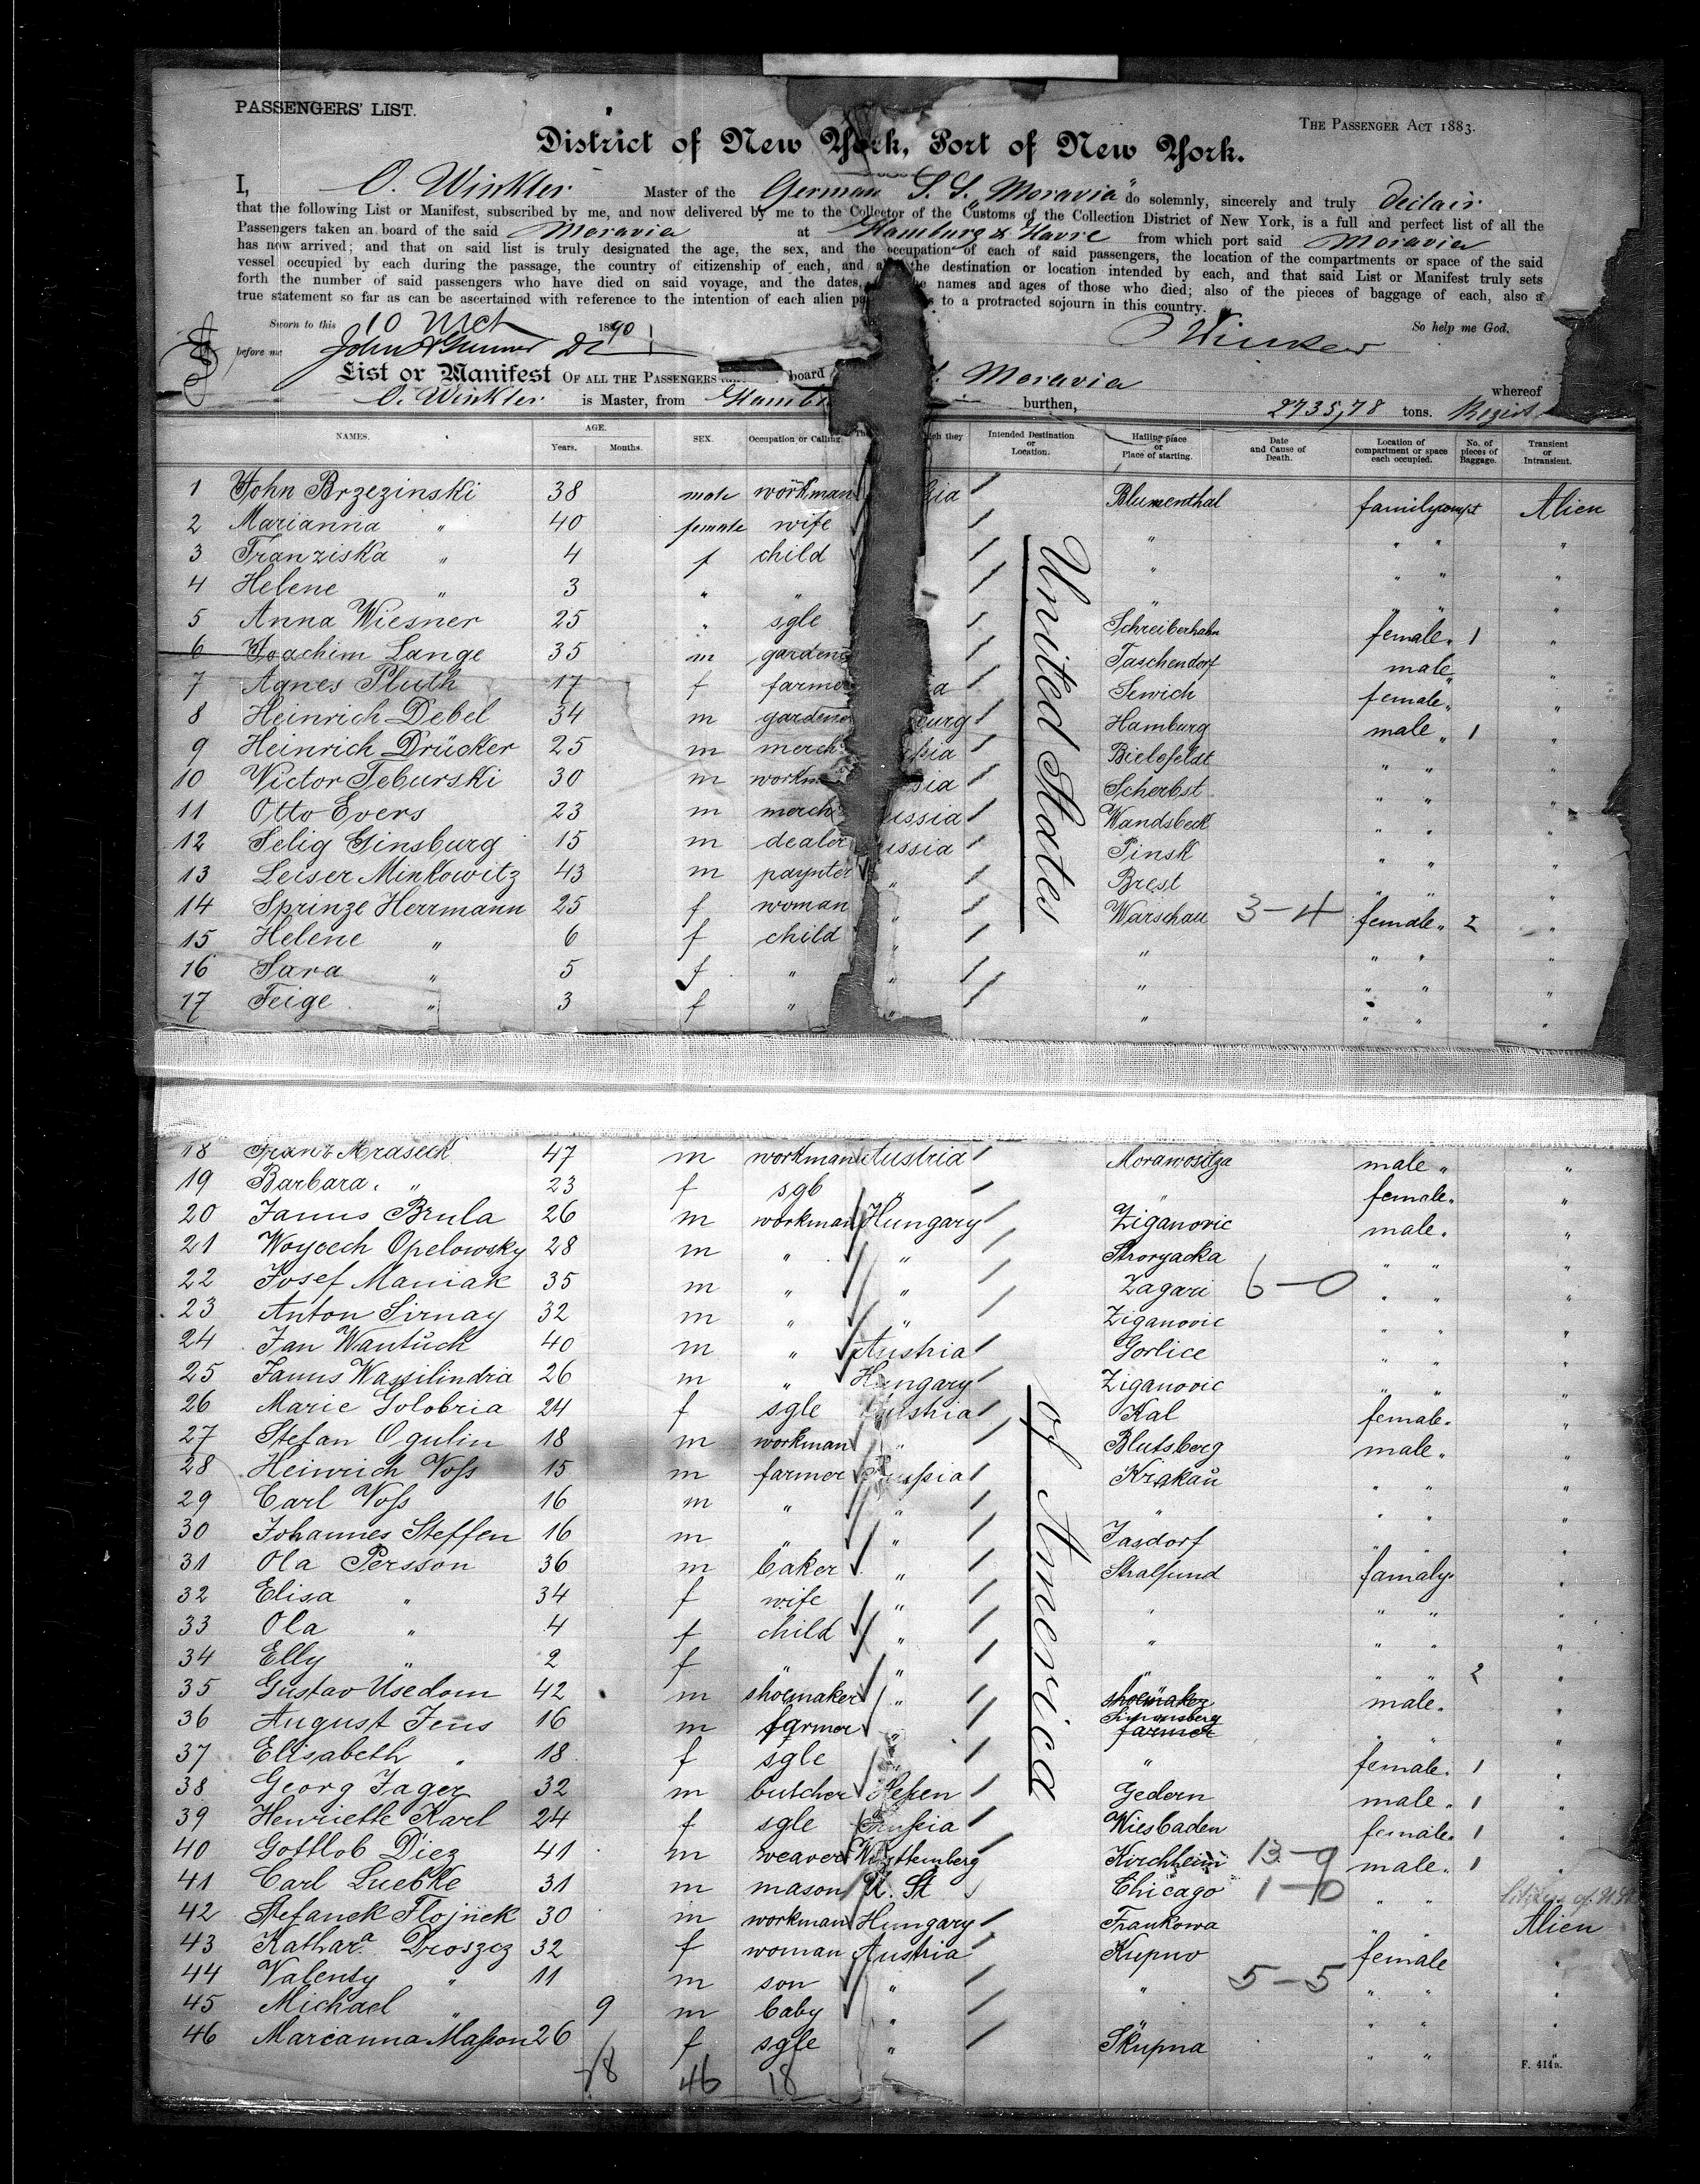 PASSENGERS' LIST.
THE PASSENGER ACT 1883.
District of New York, Port of New York.
I, O. Winkler Master of the German S. S. "Moravia" do solemnly, sincerely and truly declair
that the following List or Manifest, subscribed by me, and now delivered by me to the Collector of the Customs of the Collection District of New York, is a full and perfect list of all the
Passengers taken on board of the said Moravia at Hamburg & Havre from which port said Moravia
has now arrived; and that on said list is truly designated the age, the sex, and the occupation of each of said passengers, the location of the compartments or space of the said
vessel occupied by each during the passage, the country of citizenship of each, and the destination or location intended by each, and that said List or Manifest truly sets
forth the number of said passengers who have died on said voyage, and the dates, names and ages of those who died; also of the pieces of baggage of each, also a
true statement so far as can be ascertained with reference to the intention of each alien to a protracted sojourn in this country.
Sworn to this 10 1890 So help me God.
before me John O Winkler
List or Manifest OF ALL THE PASSENGERS board Moravia whereof
O. Winkler is Master, from burthen, 2735,78 tons. Regist
NAMES. AGE. Years. Months. SEX. Occupation or Calling. they Intended Destination or Location. Hailing place or Place of starting. Date and Cause of Death. Location of compartment or space each occupied. No. of pieces of Baggage. Transient or Intransient.
1 John Brzezinski 38 male workman Blumenthal family compt Alien
2 Marianna " 40 female wife " " " "
3 Franziska " 4 f child " " " "
4 Helene " 3 " " " " " "
5 Anna Wiesner 25 " sgle Schreiberhahn female " 1 "
6 Joachim Lange 35 m Taschendorf male " "
7 Agnes Pluth 17 f farmer Sewich female " "
8 Heinrich Debel 34 m Hamburg male " 1 "
9 Heinrich Drücker 25 m merch Bielefeldt " " "
10 Victor Teburski 30 m Scherbst " " "
11 Otto Evers 23 m merch Wandsbeck " " "
12 Selig Ginsburg 15 m dealer Pinsk " " "
13 Leiser Minkowitz 43 m paynter " Brest " " "
14 Sprinze Herrmann 25 f woman " Warschau 3-4 female " 2 "
15 Helene " 6 f child " " " " "
16 Sara " 5 f " " " " " "
17 Feige " 3 f " " " " " "
United States
18 Franz Mraseck 47 m workman Austria Morawositza male " "
19 Barbara " 23 f sgb " " female " "
20 Janus Brula 26 m workman Hungary Ziganovic male " "
21 Woycech Opelowsky 28 m " " Storyacka " " "
22 Josef Maniak 35 m " " Zagari 6-0 " " "
23 Anton Sirnay 32 m " " Ziganovic " " "
24 Jan Wantuck 40 m " Austria Gorlice " " "
25 Janus Wassilindria 26 m " Hungary Ziganovic " " "
26 Marie Golobria 24 f sgle Austria Kal female " "
27 Stefan Ogulin 18 m workman " Blutsberg male " "
28 Heinrich Voſs 15 m farmer Pruſsia Krakau " " "
29 Carl Voſs 16 m " " " " " "
30 Johannes Steffen 16 m " " Jasdorf " " "
31 Ola Persson 36 m baker " Stralsund famaly " "
32 Elisa " 34 f wife " " " " "
33 Ola " 4 f child " " " " "
34 Elly " 2 f " " " " " 2 "
35 Gustav Usedom 42 m shoemaker " shoemaker male " "
36 August Jens 16 m farmer " Simonsberg farmer " " "
37 Elisabeth " 18 f sgle " " female " 1 "
38 Georg Jager 32 m butcher Heſsen Gedern male " 1 "
39 Henriette Karl 24 f sgle Pruſsia Wiesbaden female " 1 "
40 Gottlob Diez 41 m weaver Württemberg Kirchheim 13-9 male " 1 "
41 Carl Luebke 31 m mason U. St Chicago 1-0 " " Citizen of U.St.
42 Stefanek Flojnek 30 m workman Hungary Frankowa " Alien
43 Kathara Droszcz 32 f woman Austria Kupno female "
44 Valenty " 11 m son " " 5-5 " " "
45 Michael " 9 m baby " " " "
46 Marianna Maſson 26 f sgle " Skupna " " "
of America
46 18
F. 414a.